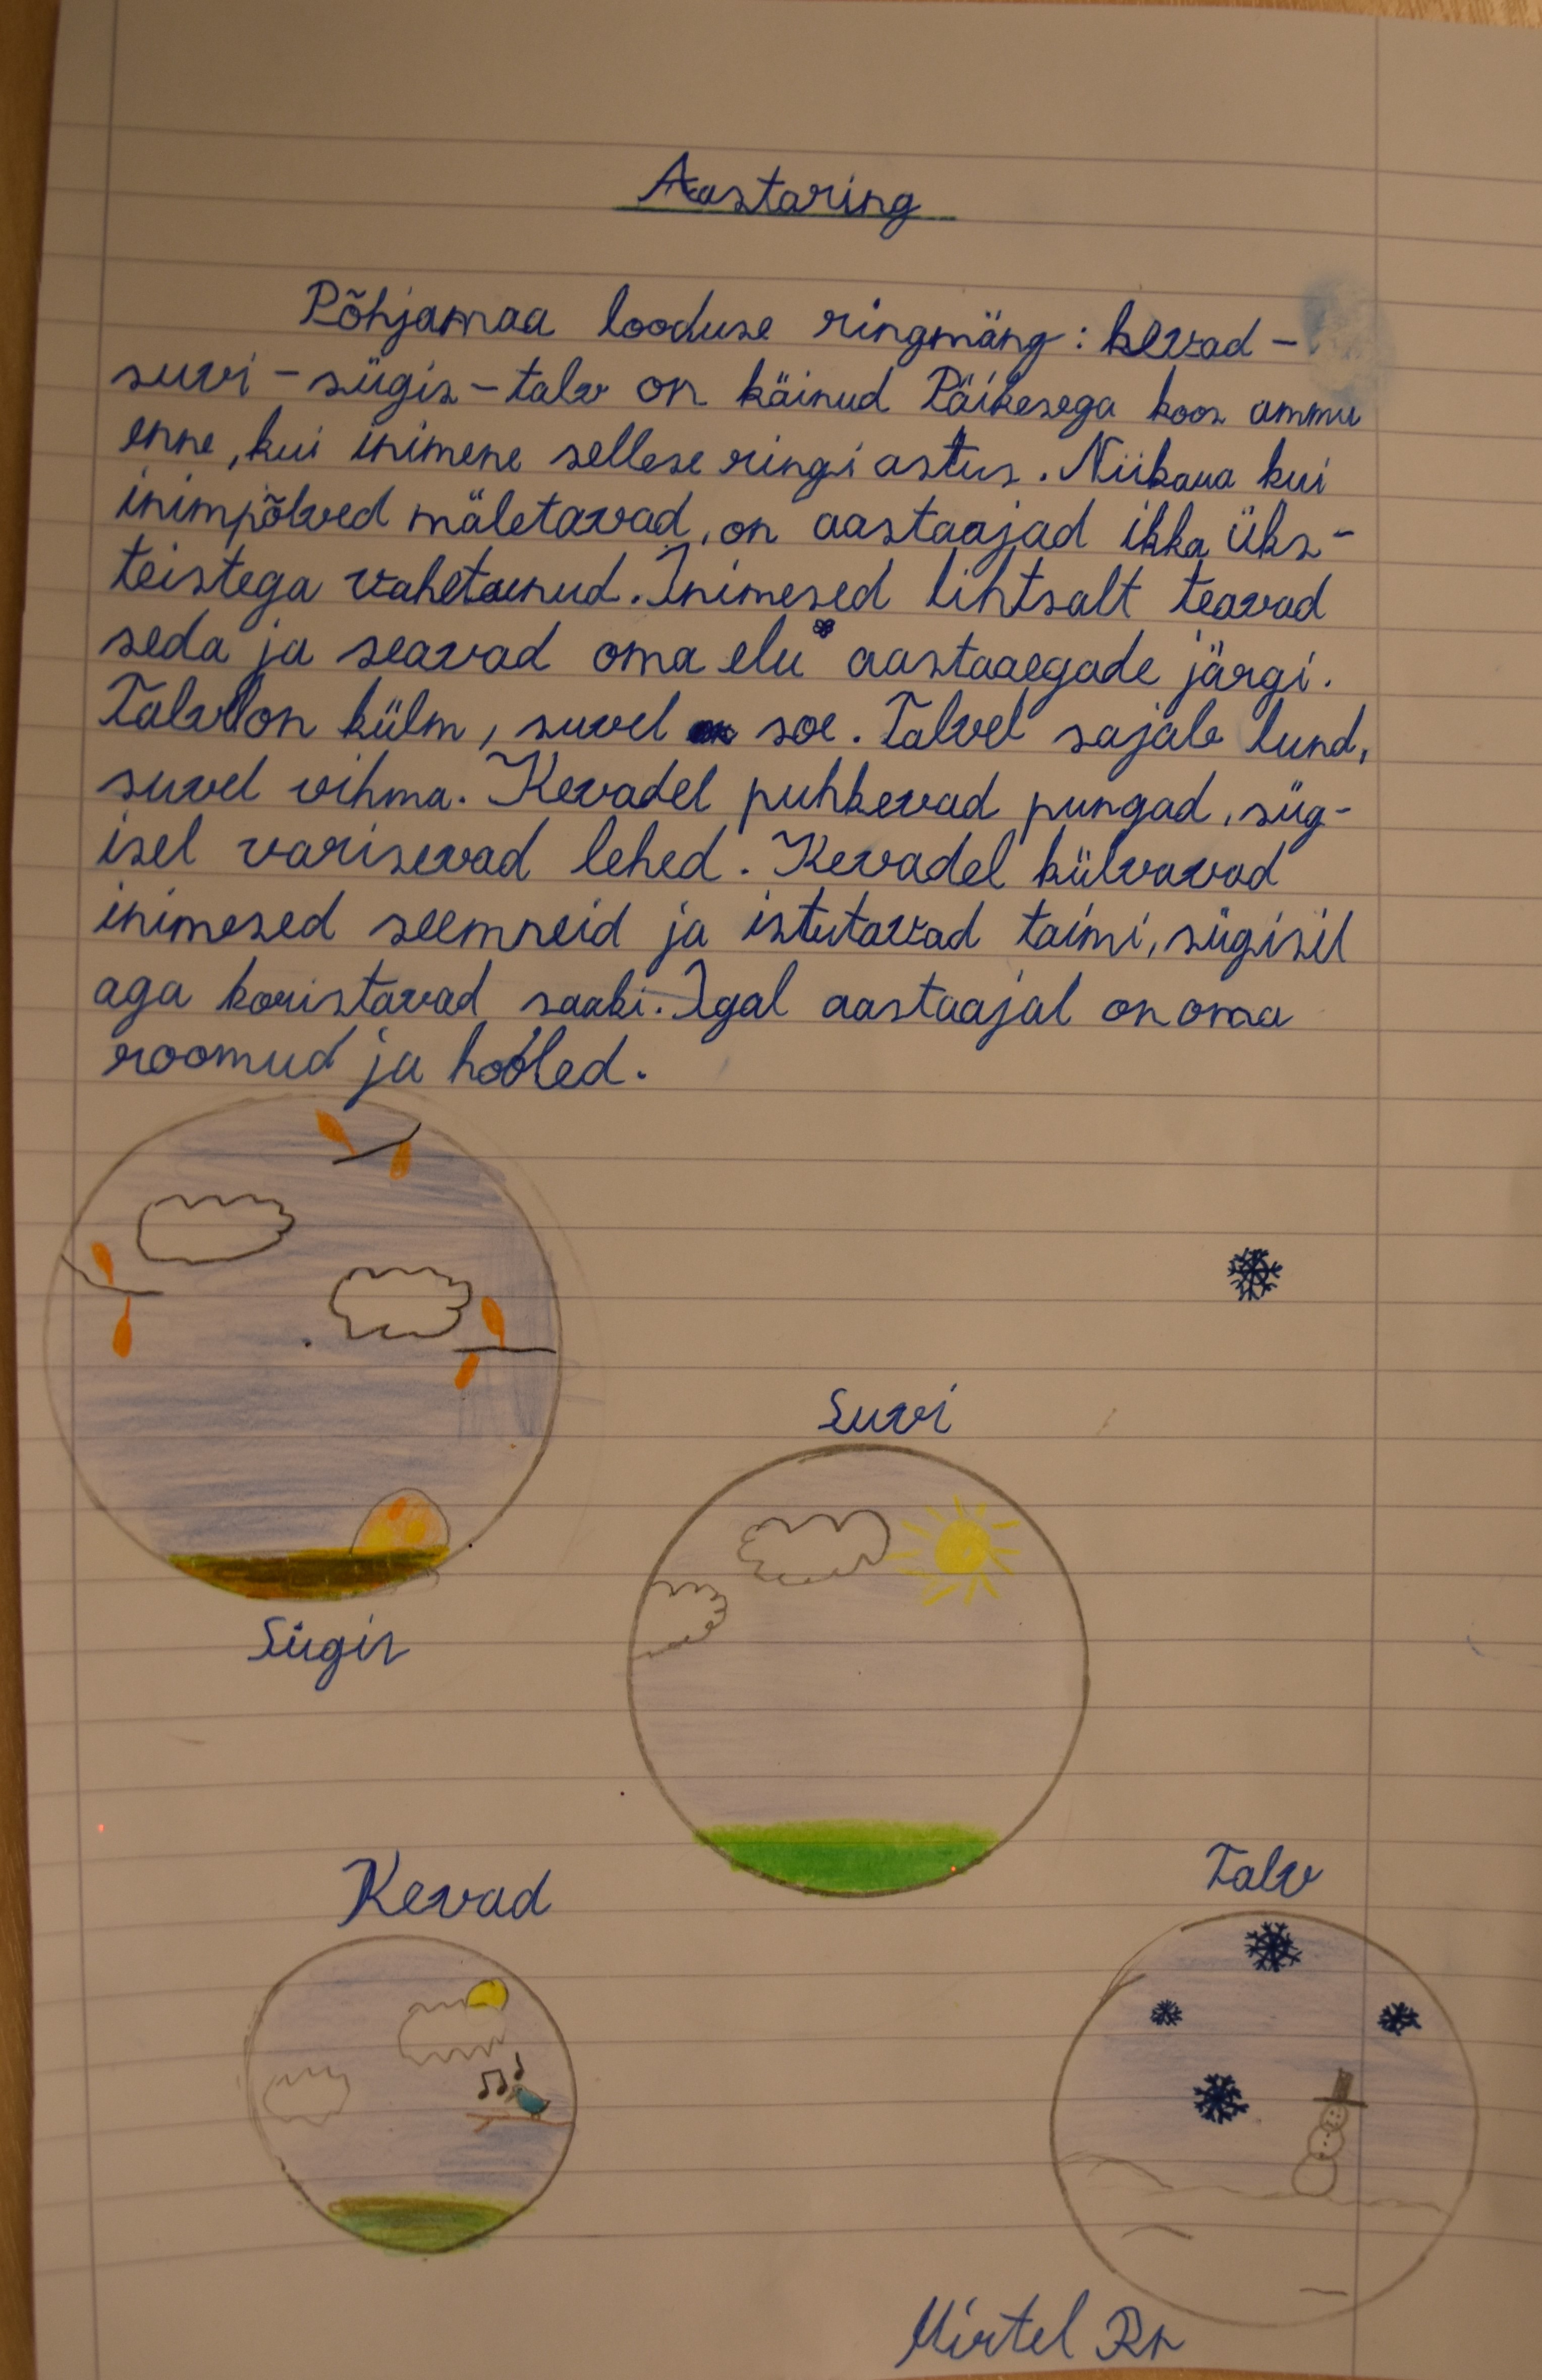 Aastaring
Põhjamaa looduse ringmäng: kevad-
suvi-sügis-talv on käinud Päikesega koos ammu
enne, kui inimene sellese ringi astus. Niikaua kui
inimpõlved mäletavad, on aastaajad ikka üks-
teistega vahetanud. Inimesed lihtsalt teavad
seda ja seavad oma elu aastaaegade järgi.
Talvel on külm, suvel soe. Talvel sajab lund,
suvel vihma. Kevadel puhkevad pungad, süg-
isel varisevad lehed. Kevadel külvavad
inimesed seemneid ja istutavad taimi, sügisil
aga koristavad saaki. Igal aastaajal on oma
roomud ja hooled.
Suvi
Sügis
Kevad
Talv
Mirtel